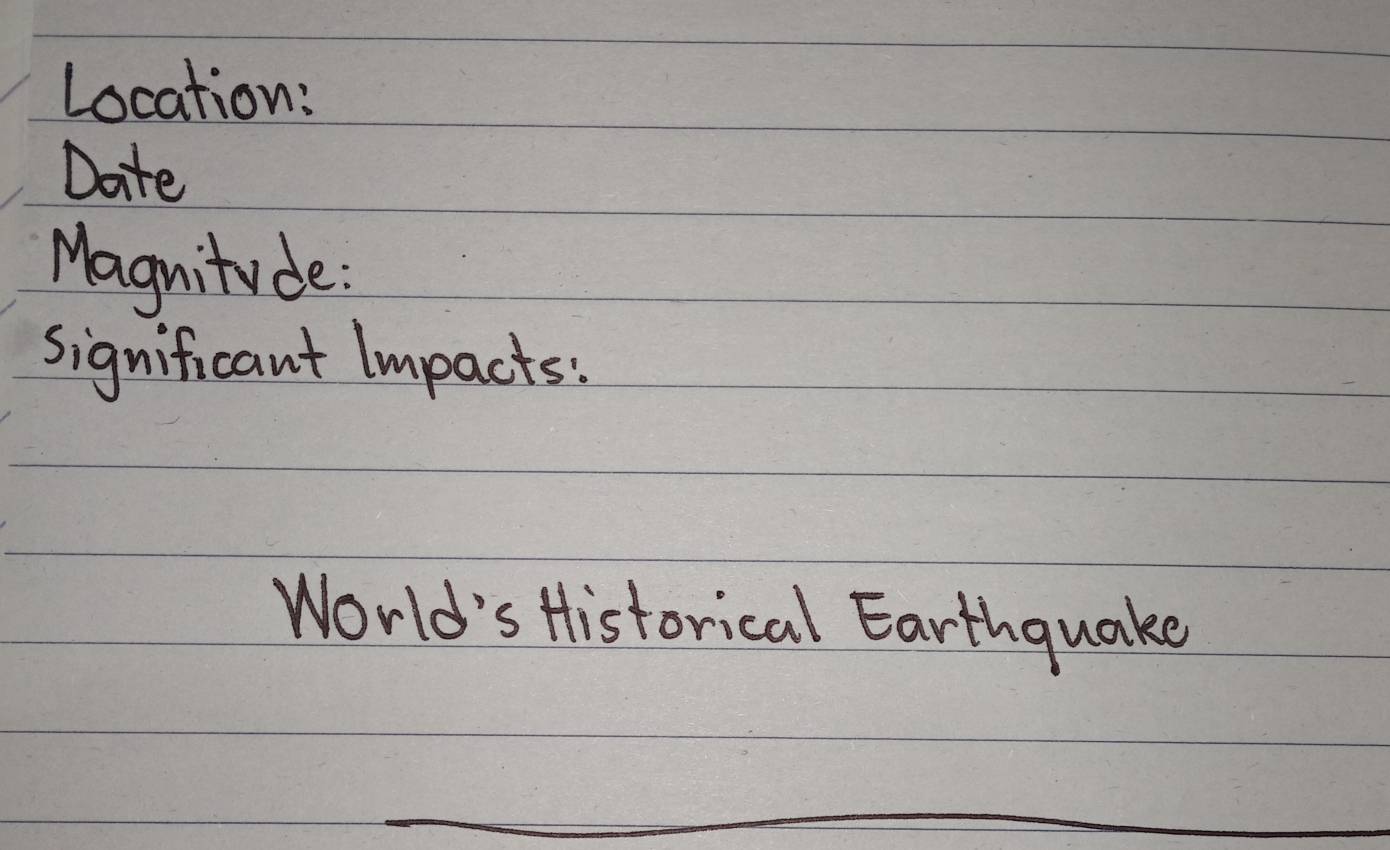 Location:
Date
Magnitude:
Significant Impacts:
World's Historical Earthquake